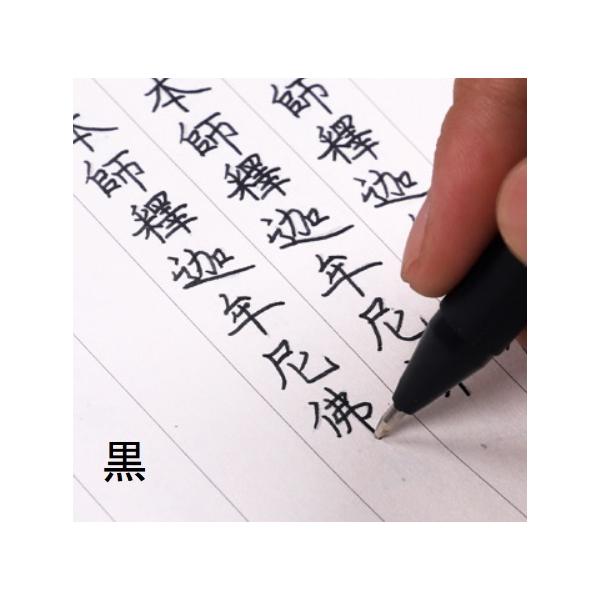 師釋迦
本師釋迦牟尼
本師釋迦牟尼佛
黒